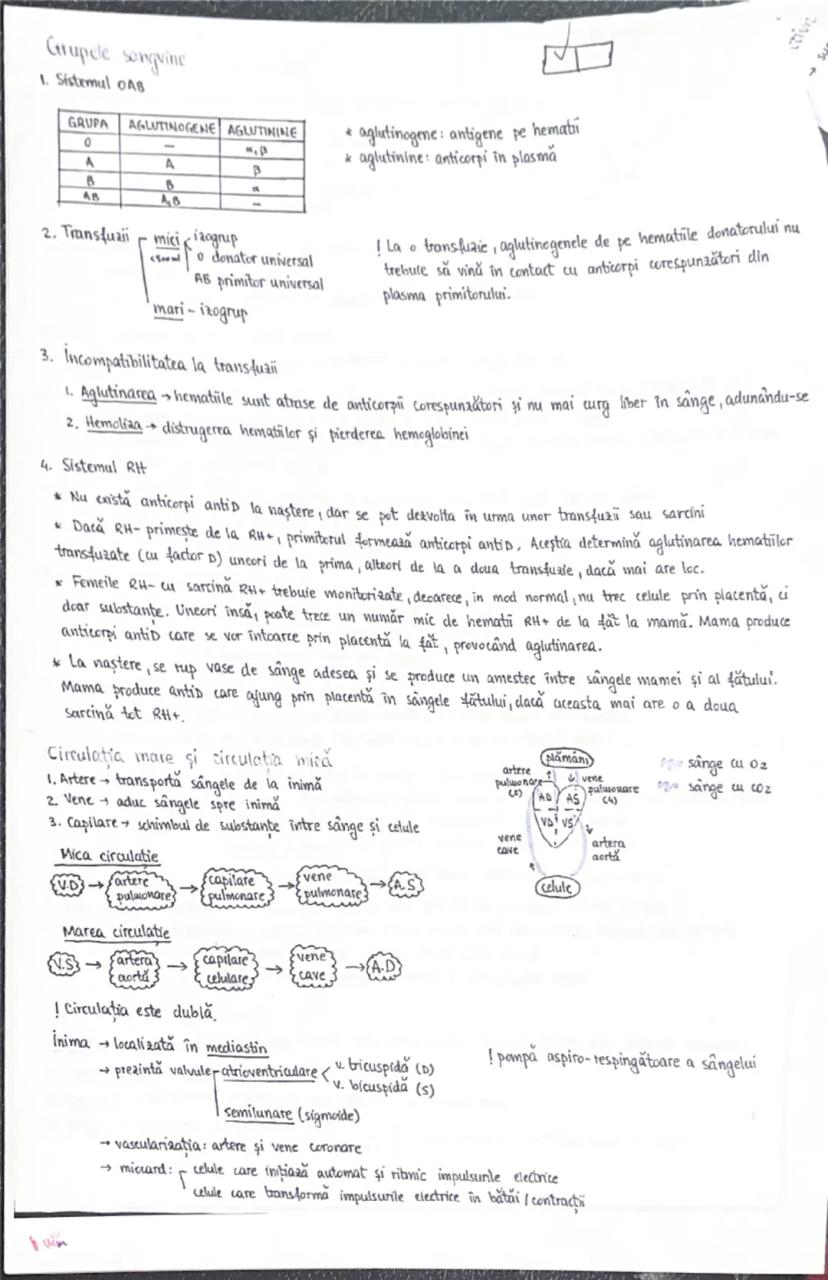 Grupele sangvine
1. Sistemul OAB
GRUPA AGLUTINOGENE AGLUTININE
0 — α, β
A A β
B B α
AB A,B —
* aglutinogene: antigene pe hematii
* aglutinine: anticorpi în plasmă
2. Transfuzii
mici izogrup
0 donator universal
AB primitor universal
mari - izogrup
! La o transfuzie, aglutinogenele de pe hematiile donatorului nu
trebuie să vină în contact cu anticorpi corespunzători din
plasma primitorului.
3. Incompatibilitatea la transfuzii
1. Aglutinarea → hematiile sunt atrase de anticorpii corespunzători și nu mai curg liber în sânge, adunându-se
2. Hemoliza → distrugerea hematiilor și pierderea hemoglobinei
4. Sistemul RH
* Nu există anticorpi antiD la naștere, dar se pot dezvolta în urma unor transfuzii sau sarcini
* Dacă RH- primește de la RH+, primitorul formează anticorpi antiD. Aceștia determină aglutinarea hematiilor
transfuzate (cu factor D) uneori de la prima, alteori de la a doua transfuzie, dacă mai are loc.
* Femeile RH- cu sarcină RH+ trebuie monitorizate, deoarece, în mod normal, nu trec celule prin placentă, ci
doar substanțe. Uneori însă, poate trece un număr mic de hematii RH+ de la făt la mamă. Mama produce
anticorpi antiD care se vor întoarce prin placentă la făt, provocând aglutinarea.
* La naștere, se rup vase de sânge adesea și se produce un amestec între sângele mamei și al fătului.
Mama produce antiD care ajung prin placentă în sângele fătului, dacă aceasta mai are o a doua
sarcină tot RH+.
Circulația mare și circulația mică
1. Artere → transportă sângele de la inimă
2. Vene → aduc sângele spre inimă
3. Capilare → schimbul de substanțe între sânge și celule
plămâni
artere
pulmonare
(2)
vene
pulmonare
(4)
AD AS
VD VS
vene
cave
artera
aortă
celule
sânge cu O2
sânge cu CO2
Mica circulație
V.D → artere pulmonare → capilare pulmonare → vene pulmonare → A.S
Marea circulație
V.S → artera aortă → capilare celulare → vene cave → A.D
! Circulația este dublă.
Inima → localizată în mediastin
→ prezintă valvule atrioventriculare < v. tricuspidă (D)
v. bicuspidă (S)
semilunare (sigmoide)
! pompă aspiro-respingătoare a sângelui
→ vascularizația: artere și vene coronare
→ miocard: celule care inițiază automat și ritmic impulsurile electrice
celule care transformă impulsurile electrice în bătăi / contracții